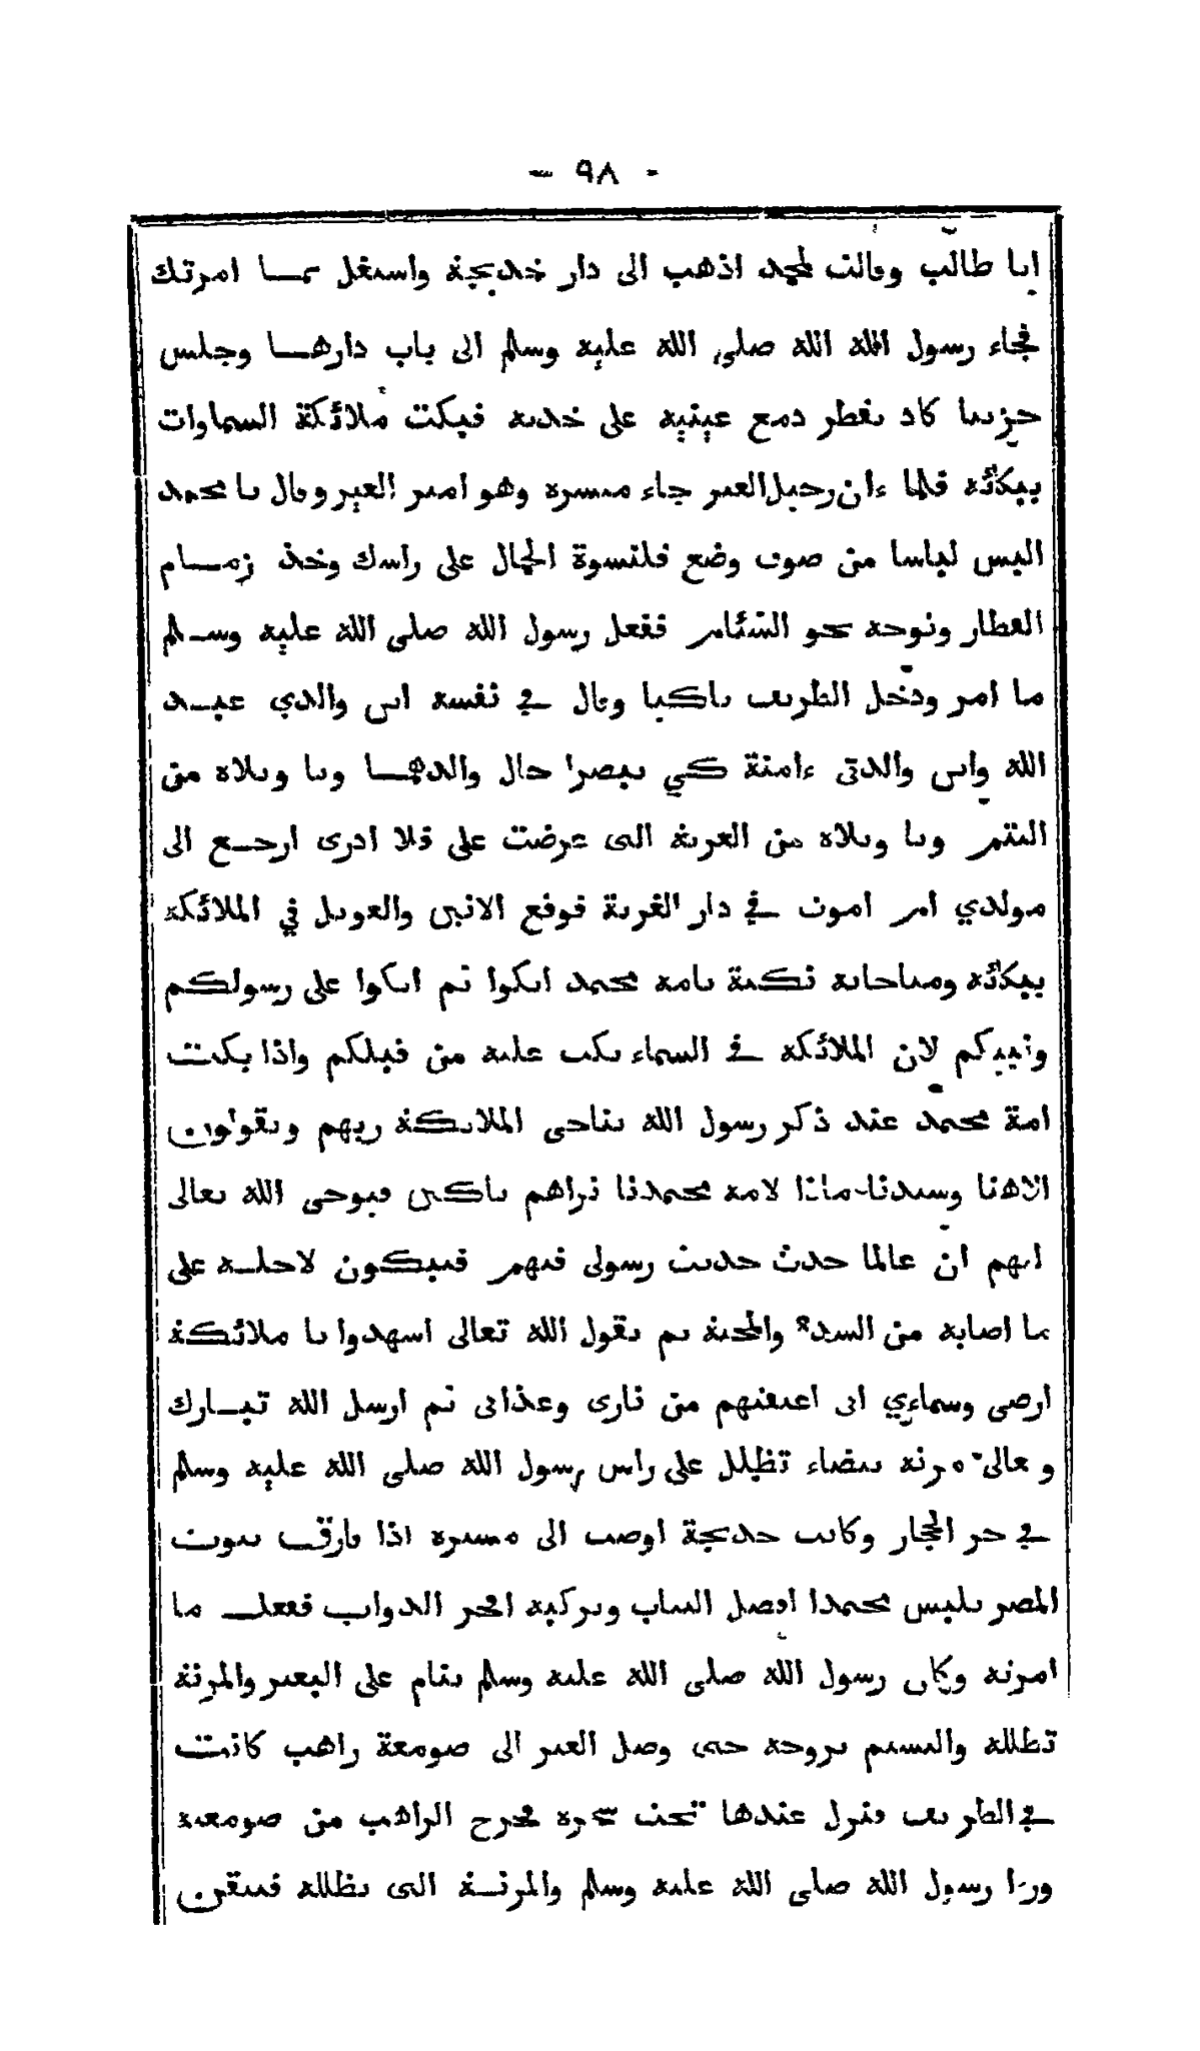 - ٩٨ -
ابا طالب وقالت لمحمد اذهب الى دار خديجة واستغل بما امرتك
فجاء رسول الله الله صلى الله عليه وسلم الى باب دارها وجلس
حزينا كاد يقطر دمع عينيه على خديه فبكت ملائكة السماوات
ببكائه فلما ءان رحيل العير جاء ميسرة وهو امير العير وقال يا محمد
البس لباسا من صوف وضع قلنسوة الجمال على راسك وخذ زمام
القطار وتوجه نحو الشئام ففعل رسول الله صلى الله عليه وسلم
ما امر ودخل الطريف باكيا وقال في نفسه اين والدي عبد
الله واين والدتى ءامنة كي يبصرا حال والدهما ويا ويلاه من
اليتم ويا ويلاه من الغربة التى عرضت على فلا ادرى ارجع الى
مولدي ام اموت في دار الغربة فوقع الانين والعويل في الملائكة
ببكائه ومناجاته نكبة يامة محمد ابكوا ثم ابكوا على رسولكم
ونبيكم لان الملائكة في السماء بكت عليه من قبلكم واذا بكت
امة محمد عند ذكر رسول الله يناجى الملايكة ربهم ويقولون
الاهنا وسيدنا ماذا لامة محمدنا نراهم باكين فيوحى الله تعالى
اليهم ان عالما حدث حديث رسولى فيهم فيبكون لاجله على
ما اصابه من السدة والمحنة ثم يقول الله تعالى اسهدوا يا ملائكة
ارضى وسماءي انى اعتقتهم من نارى وعذابى ثم ارسل الله تبارك
وتعالى مزنة بيضاء تظلل على راس رسول الله صلى الله عليه وسلم
في حر الحجاز وكانت خديجة اوصت الى ميسرة اذا فارقت بيوت
المصر يلبس محمدا افضل الثياب ويركبه افخر الدواب ففعل ما
امرته وكان رسول الله صلى الله عليه وسلم ينام على البعير والمزنة
تظلله والنسيم يروحه حتى وصل العير الى صومعة راهب كانت
في الطريف فنزل عندها تحت شجرة فخرج الراهب من صومعته
ورءا رسول الله صلى الله عليه وسلم والمزنة التى تظلله فتيقن